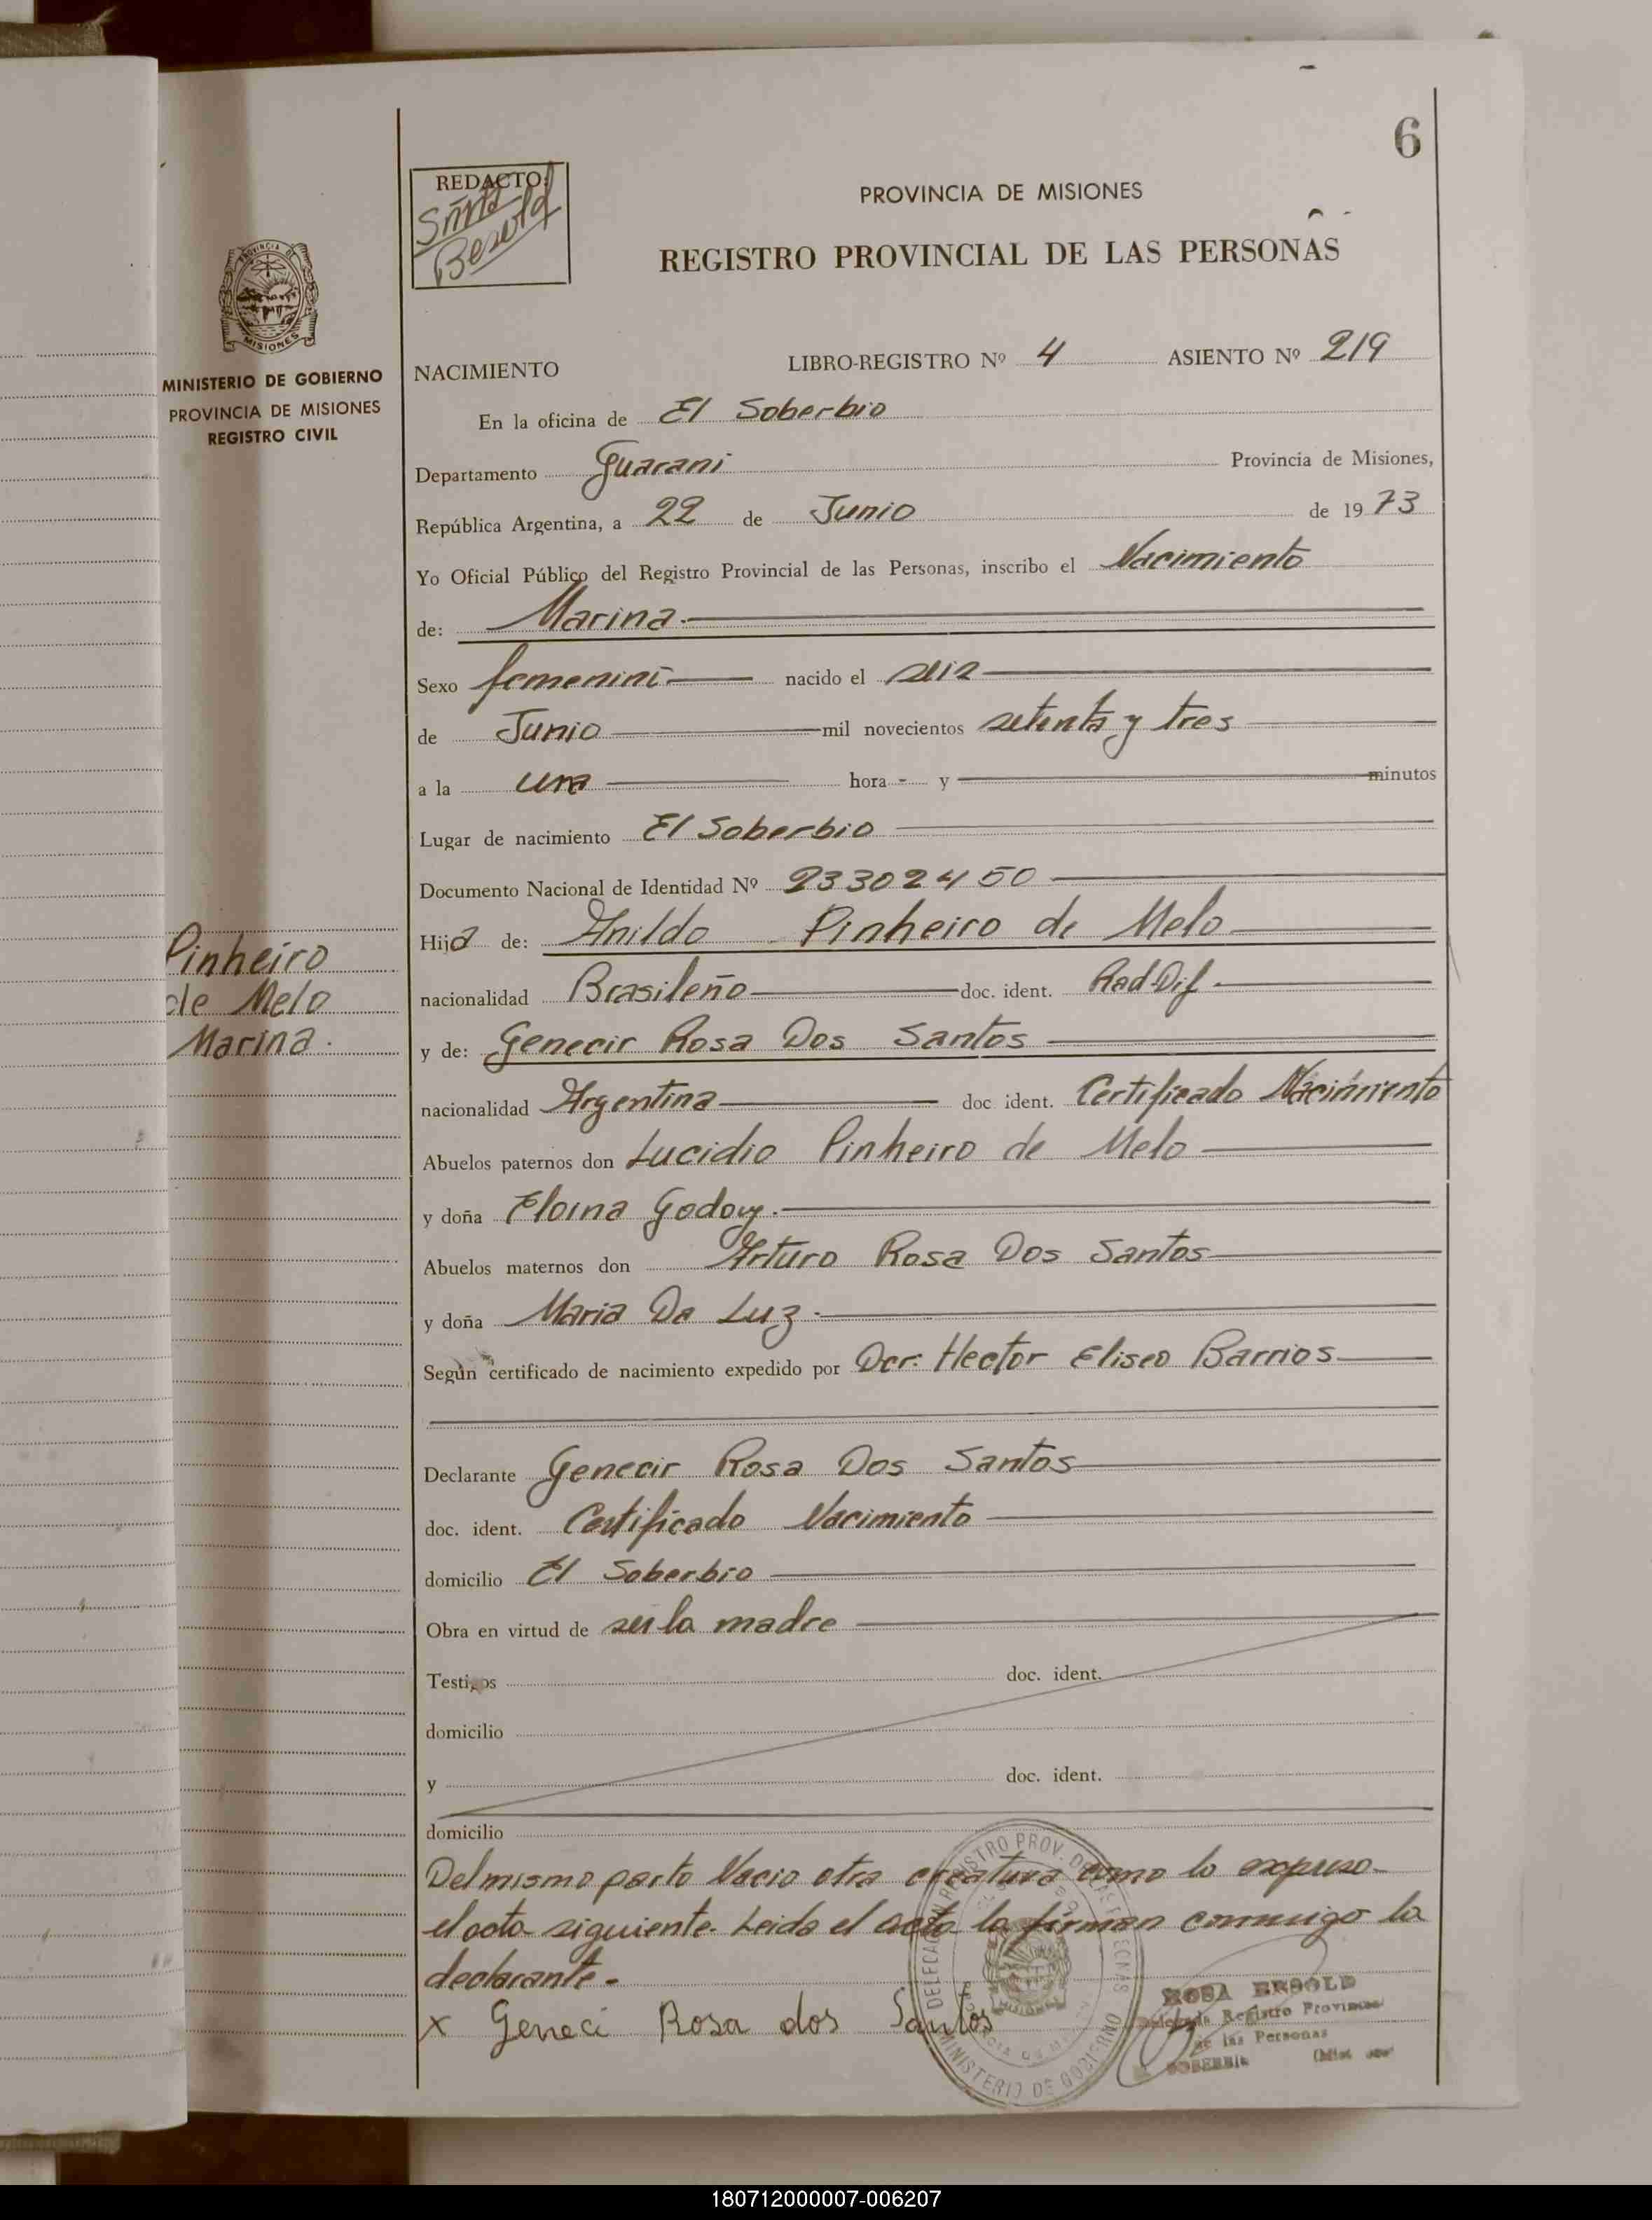 6
REDACTO:
Srita
Besold
PROVINCIA DE MISIONES
REGISTRO PROVINCIAL DE LAS PERSONAS
PROVINCIA DE
MISIONES
MINISTERIO DE GOBIERNO
PROVINCIA DE MISIONES
REGISTRO CIVIL
NACIMIENTO LIBRO-REGISTRO Nº 4 ASIENTO Nº 219
En la oficina de El Soberbio
Departamento Guarani Provincia de Misiones,
República Argentina, a 22 de Junio de 19 73
Yo Oficial Público del Registro Provincial de las Personas, inscribo el Nacimiento
de: Marina.
Sexo femenino nacido el seis
de Junio mil novecientos setenta y tres
a la una hora - y minutos
Lugar de nacimiento El Soberbio
Documento Nacional de Identidad Nº 23302450
Hija de: Anildo Pinheiro de Melo
Pinheiro
de Melo
Marina.
nacionalidad Brasileño doc. ident. Rad-Dif.
y de: Genecir Rosa Dos Santos
nacionalidad Argentina doc ident. Certificado Nacimiento
Abuelos paternos don Lucidio Pinheiro de Melo
y doña Eloina Godoy.
Abuelos maternos don Arturo Rosa Dos Santos
y doña Maria Da Luz.
Según certificado de nacimiento expedido por Dcr: Hector Eliseo Barrios
Declarante Genecir Rosa Dos Santos
doc. ident. Certificado Nacimiento
domicilio El Soberbio
Obra en virtud de ser la madre
Testigos doc. ident.
domicilio
y doc. ident.
domicilio
Del mismo parto Nacio otra creatura como lo expreso
el acta siguiente. Leida el acta la firman conmigo la
declarante.-
x Geneci Rosa dos Santos
ROSA BESOLD
Delegada Registro Provincial
de las Personas
SOBERBIO
MINISTERIO DE GOBIERNO
180712000007-006207